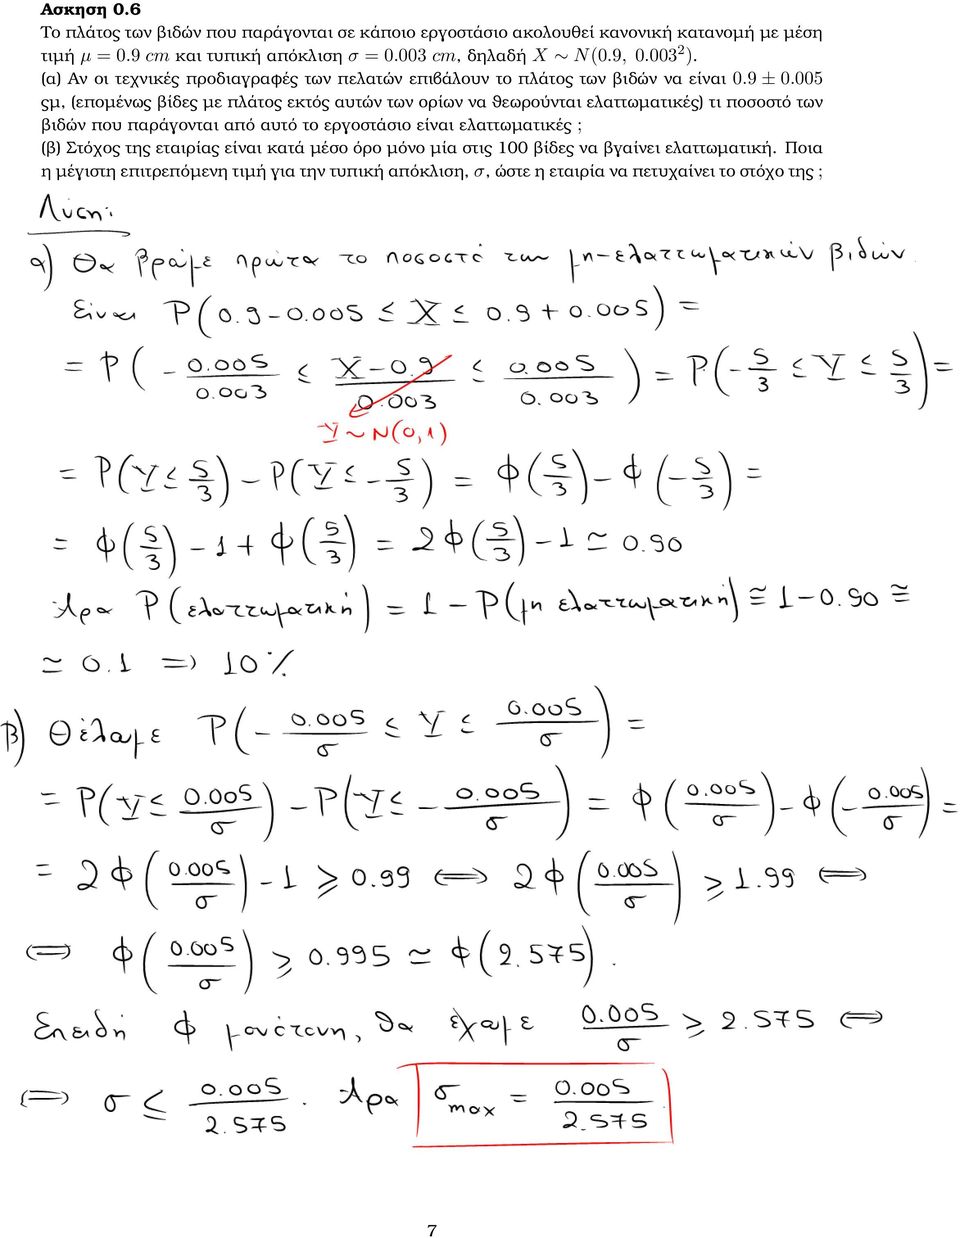 Ασκηση 0.6
Το πλάτος των βιδών που παράγονται σε κάποιο εργοστάσιο ακολουθεί κανονική κατανομή με μέση
τιμή μ = 0.9 cm και τυπική απόκλιση σ = 0.003 cm, δηλαδή X ∼ N(0.9, 0.003²).
(α) Αν οι τεχνικές προδιαγραφές των πελατών επιβάλουν το πλάτος των βιδών να είναι 0.9 ± 0.005
ςμ, (επομένως βίδες με πλάτος εκτός αυτών των ορίων να θεωρούνται ελαττωματικές) τι ποσοστό των
βιδών που παράγονται από αυτό το εργοστάσιο είναι ελαττωματικές ;
(β) Στόχος της εταιρίας είναι κατά μέσο όρο μόνο μία στις 100 βίδες να βγαίνει ελαττωματική. Ποια
η μέγιστη επιτρεπόμενη τιμή για την τυπική απόκλιση, σ, ώστε η εταιρία να πετυχαίνει το στόχο της ;
Λύση:
α) Θα βράμε πρώτα το ποσοστό των μη-ελαττωματικών βιδών.
Είναι P(0.9-0.005 ≤ X ≤ 0.9+0.005) =
= P(-0.005/0.003 ≤ (X-0.9)/0.003 ≤ 0.005/0.003) = P(-5/3 ≤ Y ≤ 5/3) =
Y∼N(0,1)
= P(Y≤5/3) - P(Y≤-5/3) = Φ(5/3) - Φ(-5/3) =
= Φ(5/3) - 1 + Φ(5/3) = 2Φ(5/3) - 1 ≃ 0.90
Άρα P(ελαττωματική) = 1 - P(μη ελαττωματική) ≅ 1-0.90 ≅
≃ 0.1 => 10%
β) Θέλαμε P(-0.005/σ ≤ Y ≤ 0.005/σ) =
= P(Y≤0.005/σ) - P(Y≤-0.005/σ) = Φ(0.005/σ) - Φ(-0.005/σ) =
= 2Φ(0.005/σ) - 1 ⩾ 0.99 ⟺ 2Φ(0.005/σ) ⩾ 1.99 ⟺
⟺ Φ(0.005/σ) ⩾ 0.995 ≃ Φ(2.575).
Επειδή Φ μονότονη, θα έχαμε 0.005/σ ⩾ 2.575 ⟺
⟺ σ ≤ 0.005/2.575. Άρα σmax = 0.005/2.575.
7